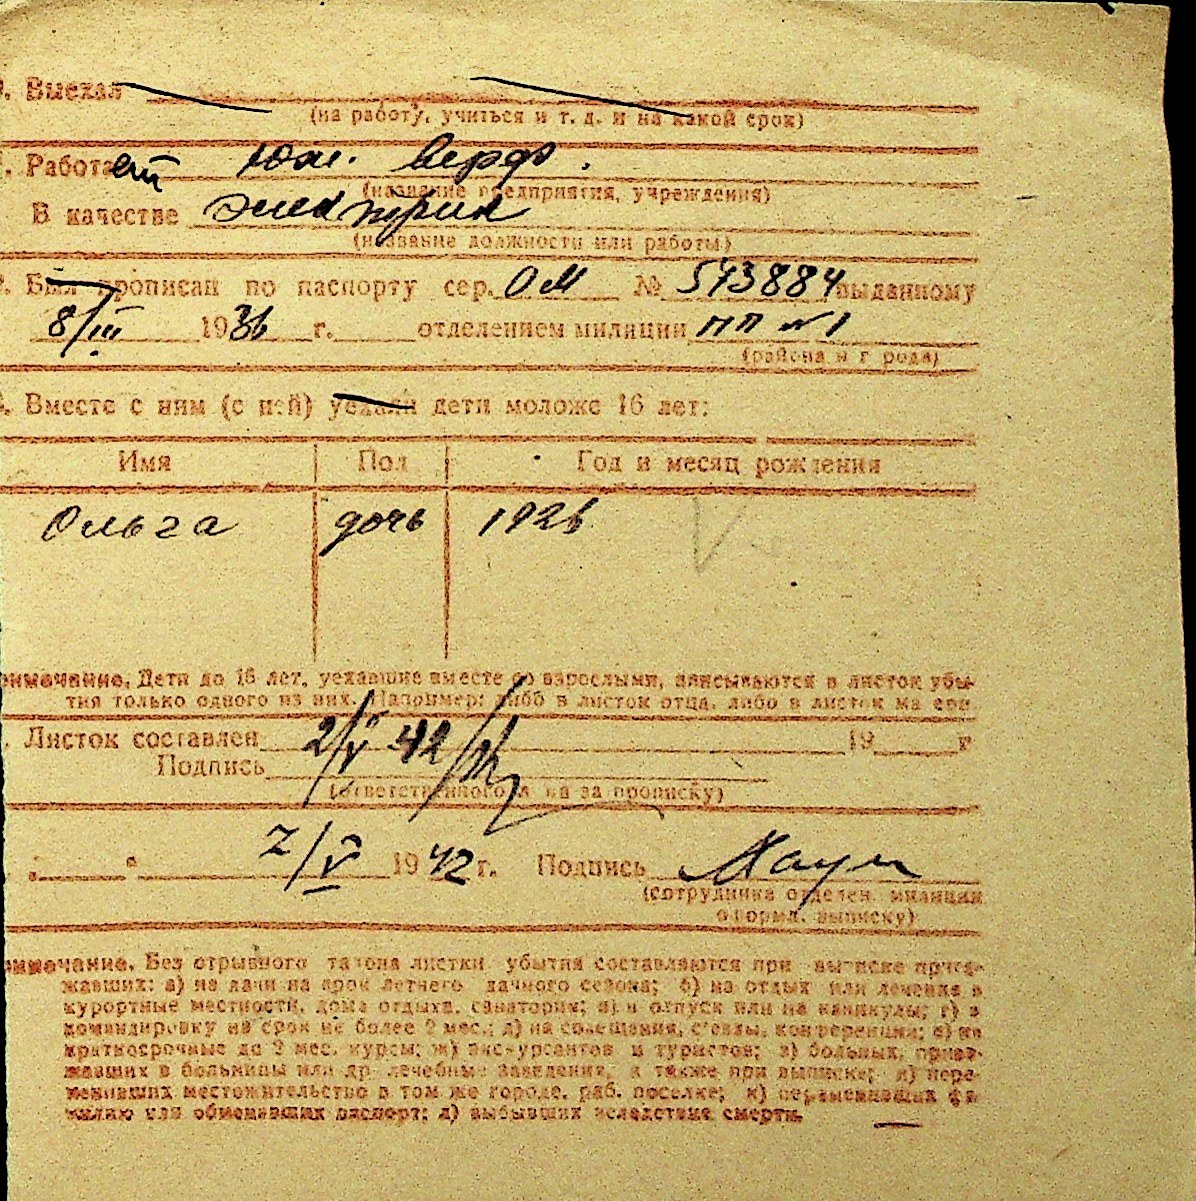 . Выехал
(на работу, учиться и т. д. и на какой срок)
. Работает Юж. верфь.
(название предприятия, учреждения)
В качестве электрик
(название должности или работы)
. Был прописан по паспорту сер. ОМ № 573884 выданному
8/III 1936 г. отделением милиции ПП №1
(района и города)
. Вместе с ним (с ней) уехали дети моложе 16 лет:
Имя Пол Год и месяц рождения
Ольга дочь 1926
имечание. Дети до 16 лет, уехавшие вместе со взрослыми, вписываются в листок убы-
тия только одного из них. Например: либо в листок отца, либо в листок матери
. Листок составлен 2/V 42 19 г
Подпись
(ответственного л на за прописку)
" " 2/V 1942 г. Подпись
(сотрудника отделен. милиции
оформл. выписку)
имечание. Без отрывного талона листки убытия составляются при выписке приез-
жавших: а) на дачи на срок летнего дачного сезона; б) на отдых или лечение в
курортные местности, дома отдыха, санатории; в) в отпуск или на каникулы; г) в
командировку на срок не более 2 мес.; д) на совещания, съезды, конференции; е) на
краткосрочные до 2 мес. курсы; ж) экскурсантов и туристов; з) больных, приез-
жавших в больницы или др. лечебные заведения, а также при выписке; и) пере-
менивших местожительство в том же городе, раб. поселке; к) переменивших фа-
милию или обменявших паспорт; л) выбывших вследствие смерти.